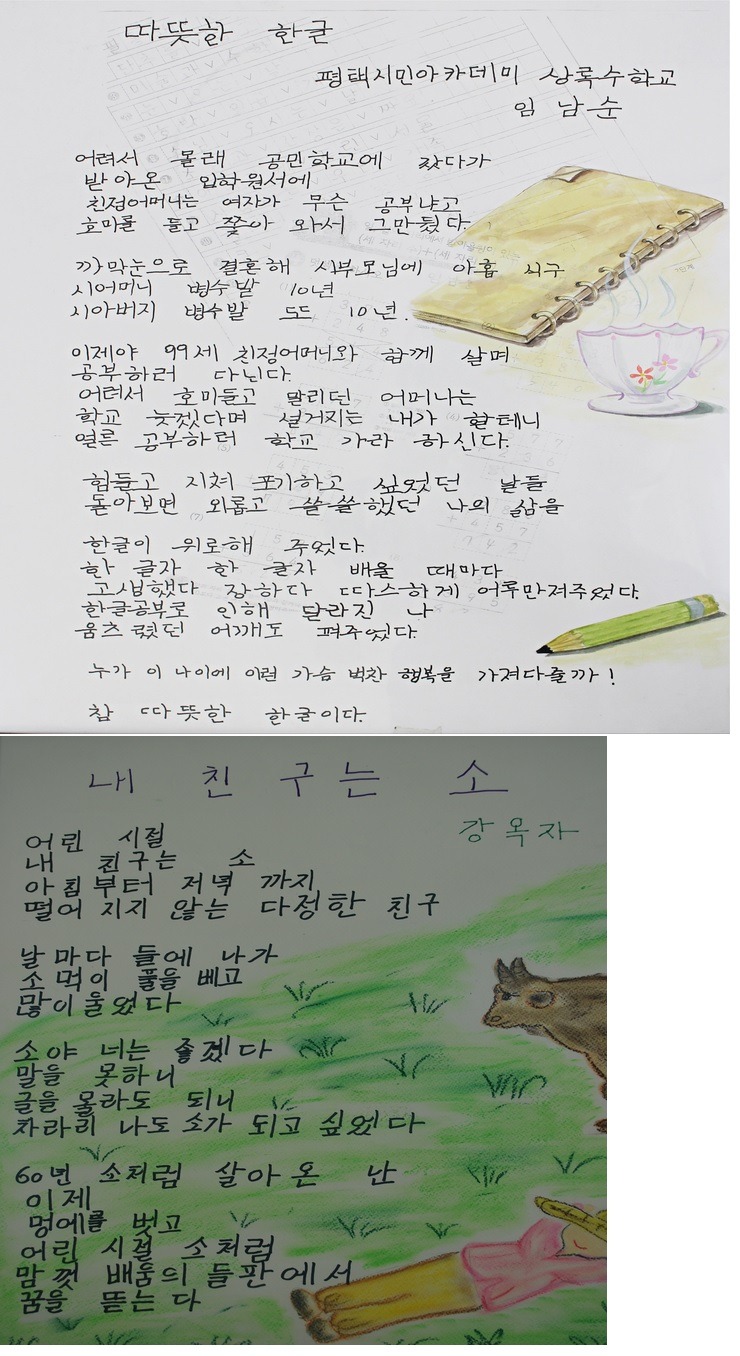 따뜻한 한글
평택시민아카데미 상록수학교
임남순
어려서 몰래 공민학교에 갔다가
받아온 입학원서에
친정어머니는 여자가 무슨 공부냐고
호미를 들고 쫓아 와서 그만뒀다.
까막눈으로 결혼해 시부모님에 아홉 식구
시어머니 병수발 10년
시아버지 병수발 또또 10년.
이제야 99세 친정어머니와 함께 살며
공부하러 다닌다.
어려서 호미들고 말리던 어머니는
학교 늦겠다며 설거지는 내가 할테니
얼른 공부하러 학교 가라 하신다.
힘들고 지쳐 포기하고 싶었던 날들
돌아보면 외롭고 쓸쓸했던 나의 삶을
한글이 위로해 주었다.
한 글자 한 글자 배울 때마다
고생했다 장하다 따스하게 어루만져주었다.
한글공부로 인해 달라진 나
움츠렸던 어깨도 펴주었다.
누가 이 나이에 이런 가슴 벅찬 행복을 가져다줄까!
참 따뜻한 한글이다.
내 친구는 소
강옥자
어린 시절
내 친구는 소
아침부터 저녁 까지
떨어 지지 않는 다정한 친구
날마다 들에 나가
소 먹이 풀을 베고
많이 울었다
소야 너는 좋겠다
말을 못하니
글을 몰라도 되니
차라리 나도 소가 되고 싶었다
60년 소처럼 살아온 난
이제
멍에를 벗고
어린 시절 소처럼
맘껏 배움의 들판에서
꿈을 뜯는다